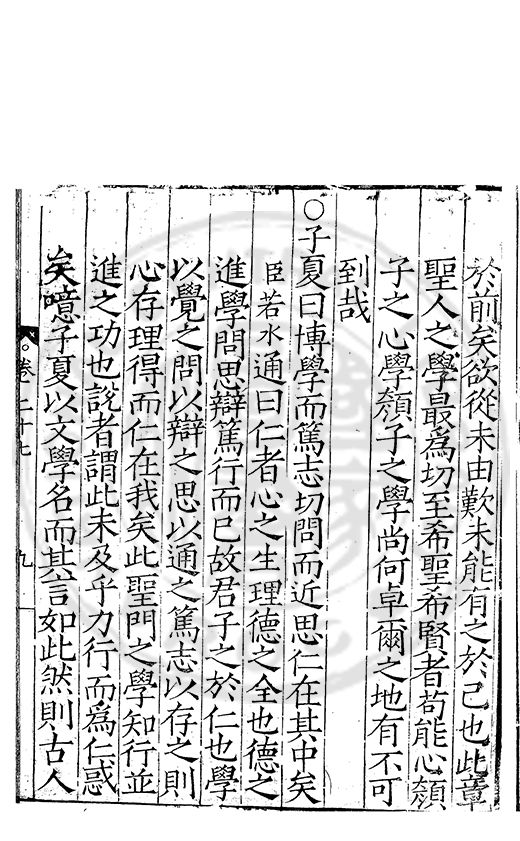 於前矣欲從末由歎未能有之於己也此章
聖人之學最爲切至希聖希賢者苟能心顏
子之心學顏子之學尚何卓爾之地有不可
到哉
○子夏曰博學而篤志切問而近思仁在其中矣
臣若水通曰仁者心之生理德之全也德之
進學問思辯篤行而已故君子之於仁也學
以覺之問以辯之思以通之篤志以存之則
心存理得而仁在我矣此聖門之學知行並
進之功也說者謂此未及乎力行而爲仁惑
矣噫子夏以文學名而其言如此然則古人
卷二十七
九